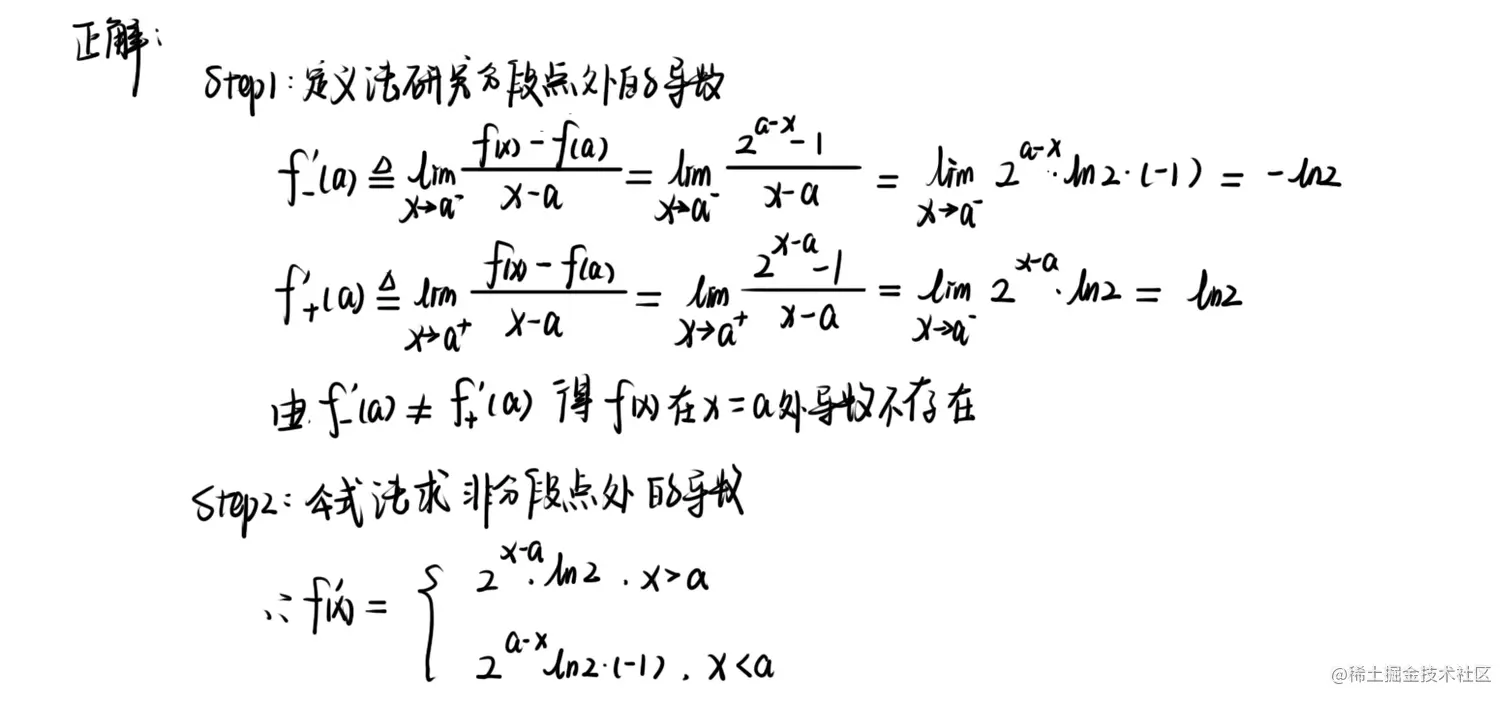 正解：
Step1：定义法研究分段点处的导数
f₋′(a) ≜ lim_{x→a⁻} (f(x)-f(a))/(x-a) = lim_{x→a⁻} (2^{a-x}-1)/(x-a) = lim_{x→a⁻} 2^{a-x}·ln2·(-1) = -ln2
f₊′(a) ≜ lim_{x→a⁺} (f(x)-f(a))/(x-a) = lim_{x→a⁺} (2^{x-a}-1)/(x-a) = lim_{x→a⁻} 2^{x-a}·ln2 = ln2
由 f₋′(a) ≠ f₊′(a) 得 f(x) 在 x=a 处导数不存在
Step2：公式法求非分段点处的导数
∴ f′(x) = { 2^{x-a}·ln2 , x>a
2^{a-x}ln2·(-1) , x<a
@稀土掘金技术社区